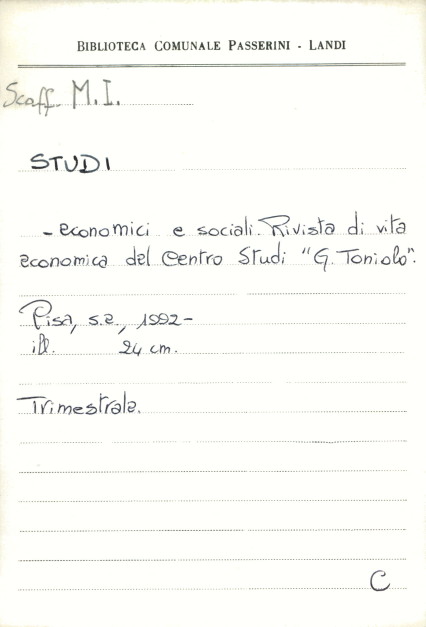 BIBLIOTECA COMUNALE PASSERINI - LANDI
Scaff. M.I.
STUDI
- economici e sociali. Rivista di vita
economica del Centro Studi "G. Toniolo".
Pisa, s.e., 1992-
ill. 24 cm.
Trimestrale.
C